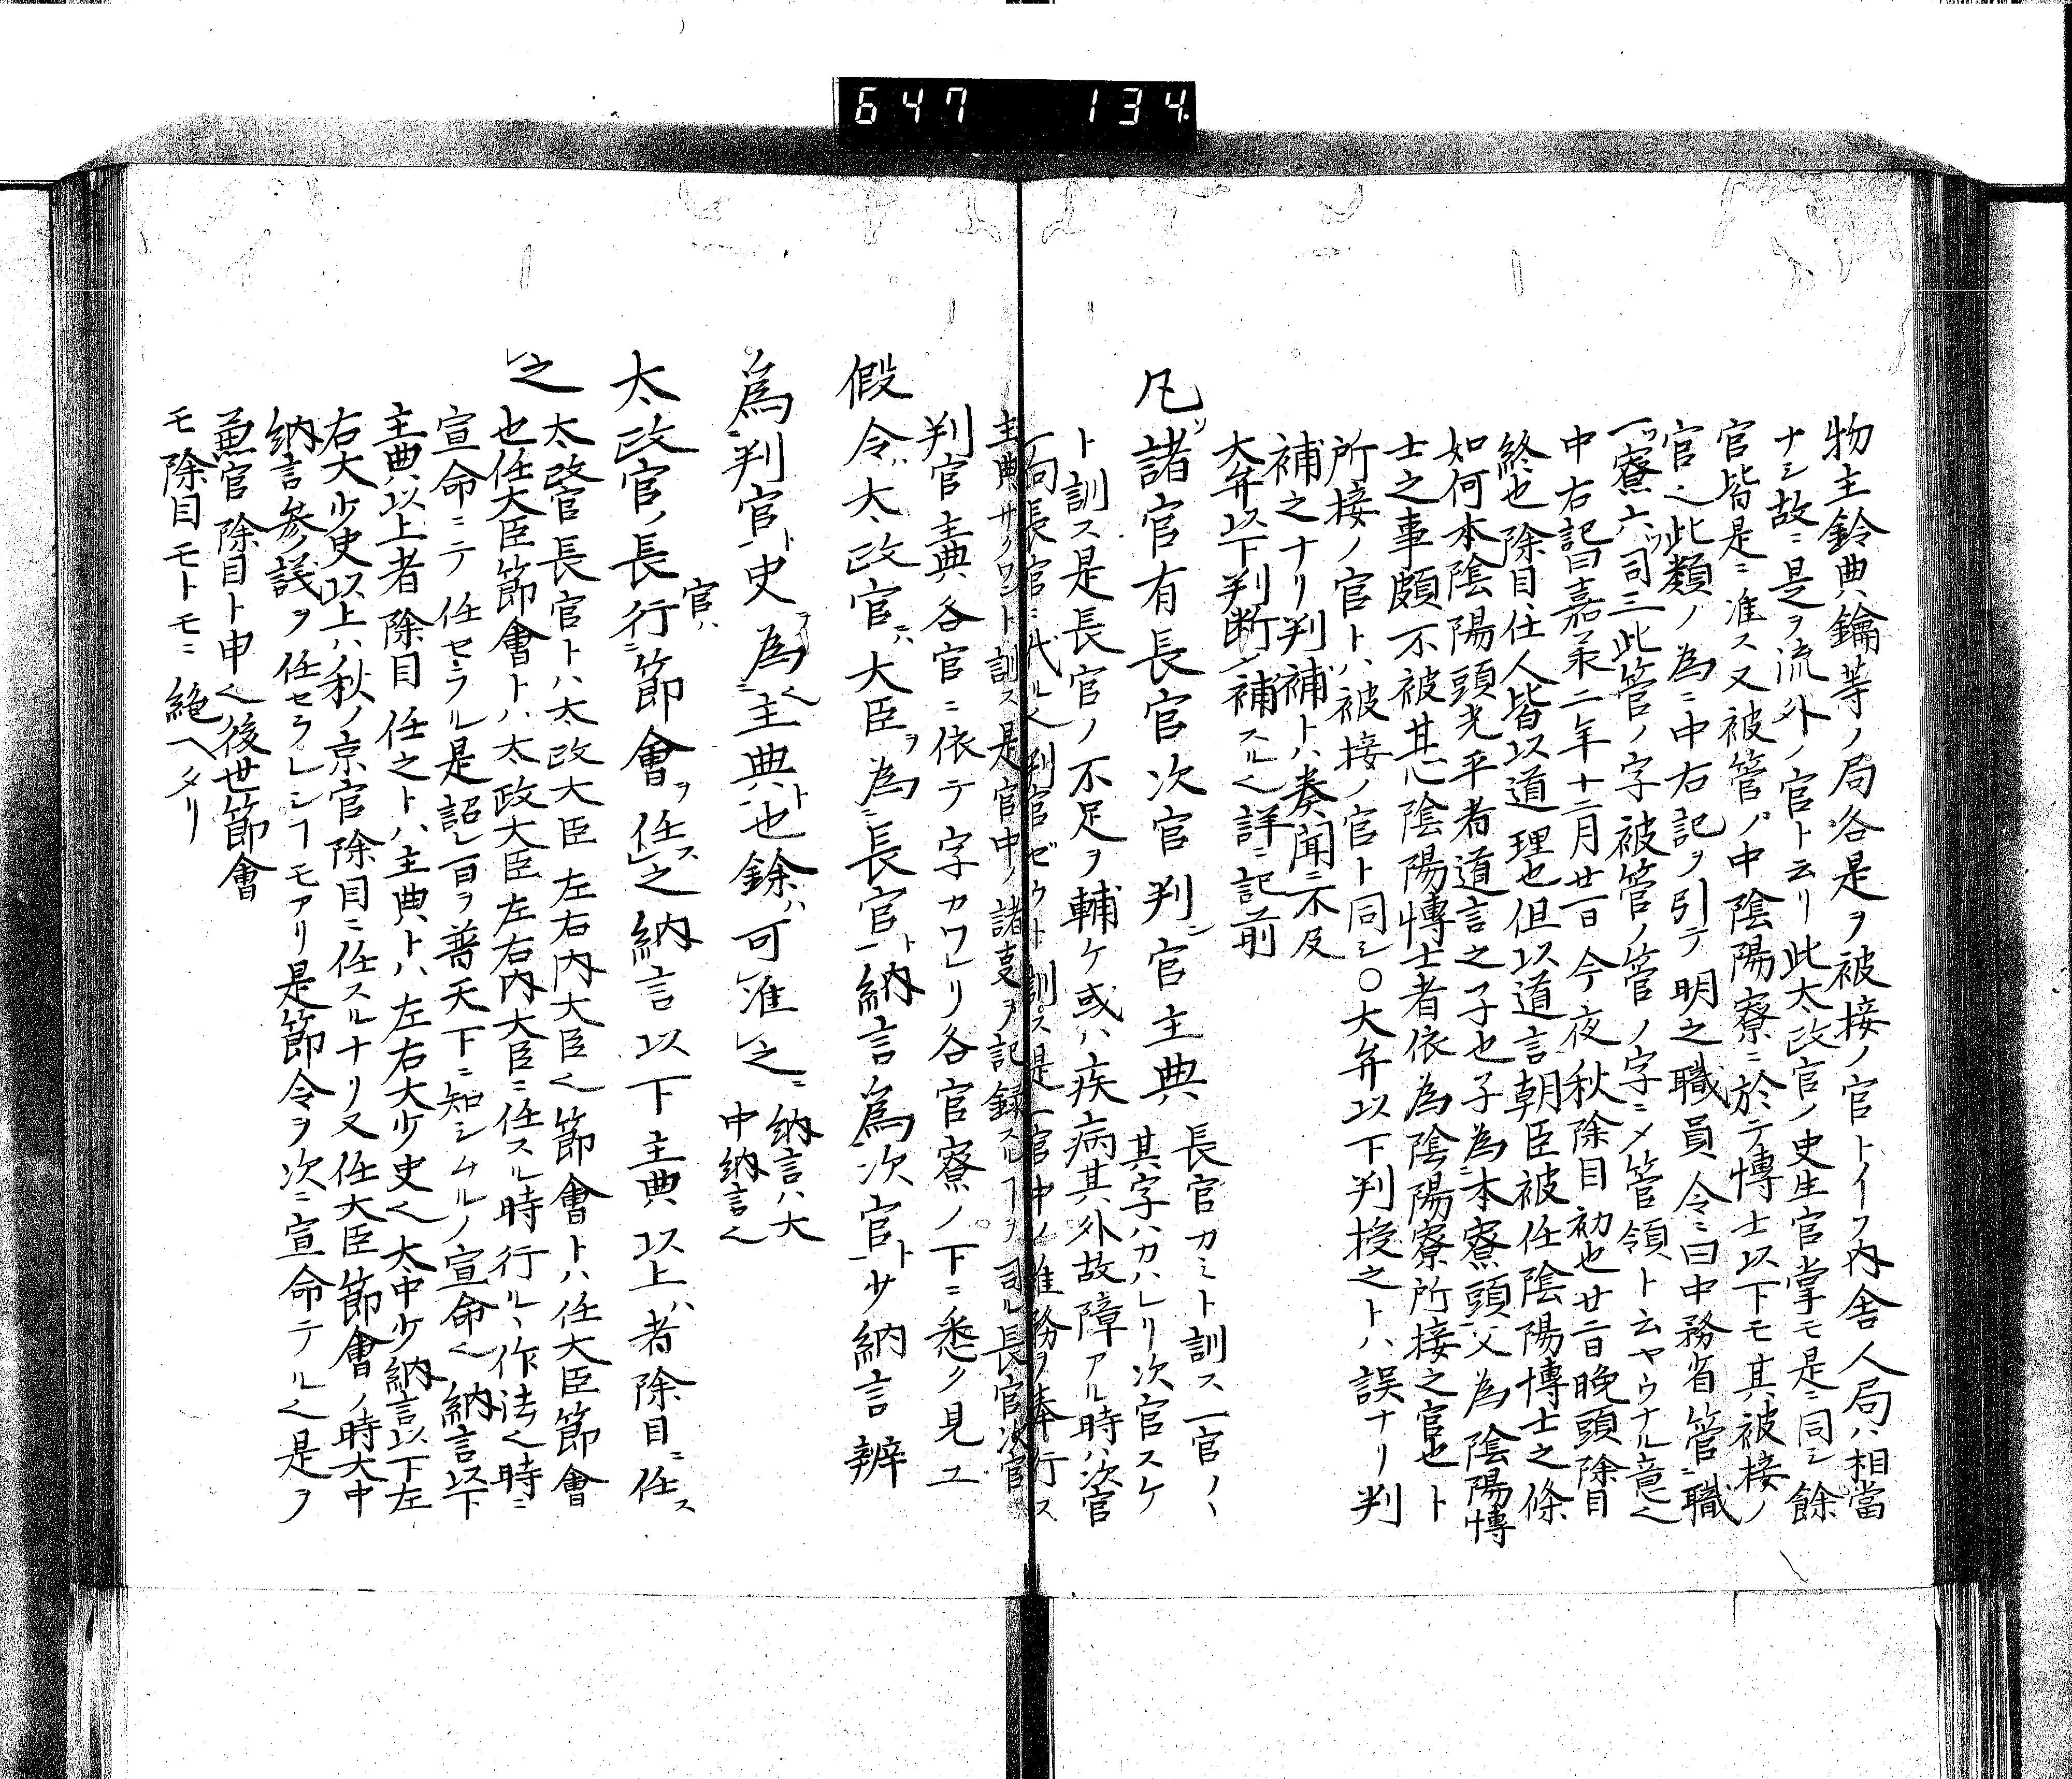 647 134
物主鈴典鑰等ノ局各是ヲ被接ノ官トイフ内舎人局ハ相當
ナシ故ニ是ヲ流外ノ官ト云リ此太政官ノ史生官掌モ是ニ同シ餘
官皆是ニ准ス又被管ノ中陰陽寮ニ於テ博士以下モ其被接ノ
官之此類ノ為ニ中右記ヲ引テ明之職員令ニ曰中務省管ニ職
一寮六司三此管ノ字被管ノ管ノ字ニメ管領ト云ヤウナル意之
中右記曰嘉承二年十二月廿一日今夜秋除目初也廿二日晩頭除目
終也除目任人皆以道理也但以道言朝臣被任陰陽博士之條
如何本陰陽頭光平者道言之子也子為本寮頭父為陰陽博
士之事頗不被甘心陰陽博士者依為陰陽寮所接之官也ト
所接ノ官トハ被接ノ官ト同シ〇大弁以下判授之トハ誤ナリ判
補之ナリ判補トハ奏聞ニ不及
大弁以下判断ノ補スル之詳ニ記前
凡諸官有長官次官判官主典 長官カミト訓ス一官ノ
其字ハカハレリ次官スケ
ト訓ス是長官ノ不足ヲ輔ケ或ハ疾病其外故障アル時ハ次官
一向長官ニ代ル之判官ゼウト訓ス是一官中ノ雑務ヲ奉行ス
主典サクワント訓ス是官中ノ諸叓ヲ記録スルヿヲ司ル長官次官
判官主典各官ニ依テ字カワレリ各官寮ノ下ニ悉ク見ユ
假令太政官ニハ大臣ヲ為ニ長官ト納言為次官ト少納言辨
為判官ト史ヲ為ニ主典ト也餘ハ可准レ之ニ 納言ハ大
中納言之
太政官ノ長官ハ行ニ節會ヲ任スレ之納言以下主典以上ハ者除目ニ任ス
レ之 太政官長官トハ太政大臣左右内大臣之節會トハ任大臣節會
也任大臣節會トハ太政大臣左右内大臣ニ任スル時行ルヽ作法之時ニ
宣命ニテ任セラル是詔レ百ヲ普天下ニ知シムルノ宣命之納言以下
主典以上者除目任之トハ主典トハ左右大少史之大中少納言以下左
右大少史以上ハ秋ノ京官除目ニ任スルナリ又任大臣節會ノ時大中
納言参議ヲ任セラレシヿモアリ是節令ヲ次ニ宣命テル之是ヲ
魚官除目ト申之後世節會
モ除目モトモニ絶ヘタリ